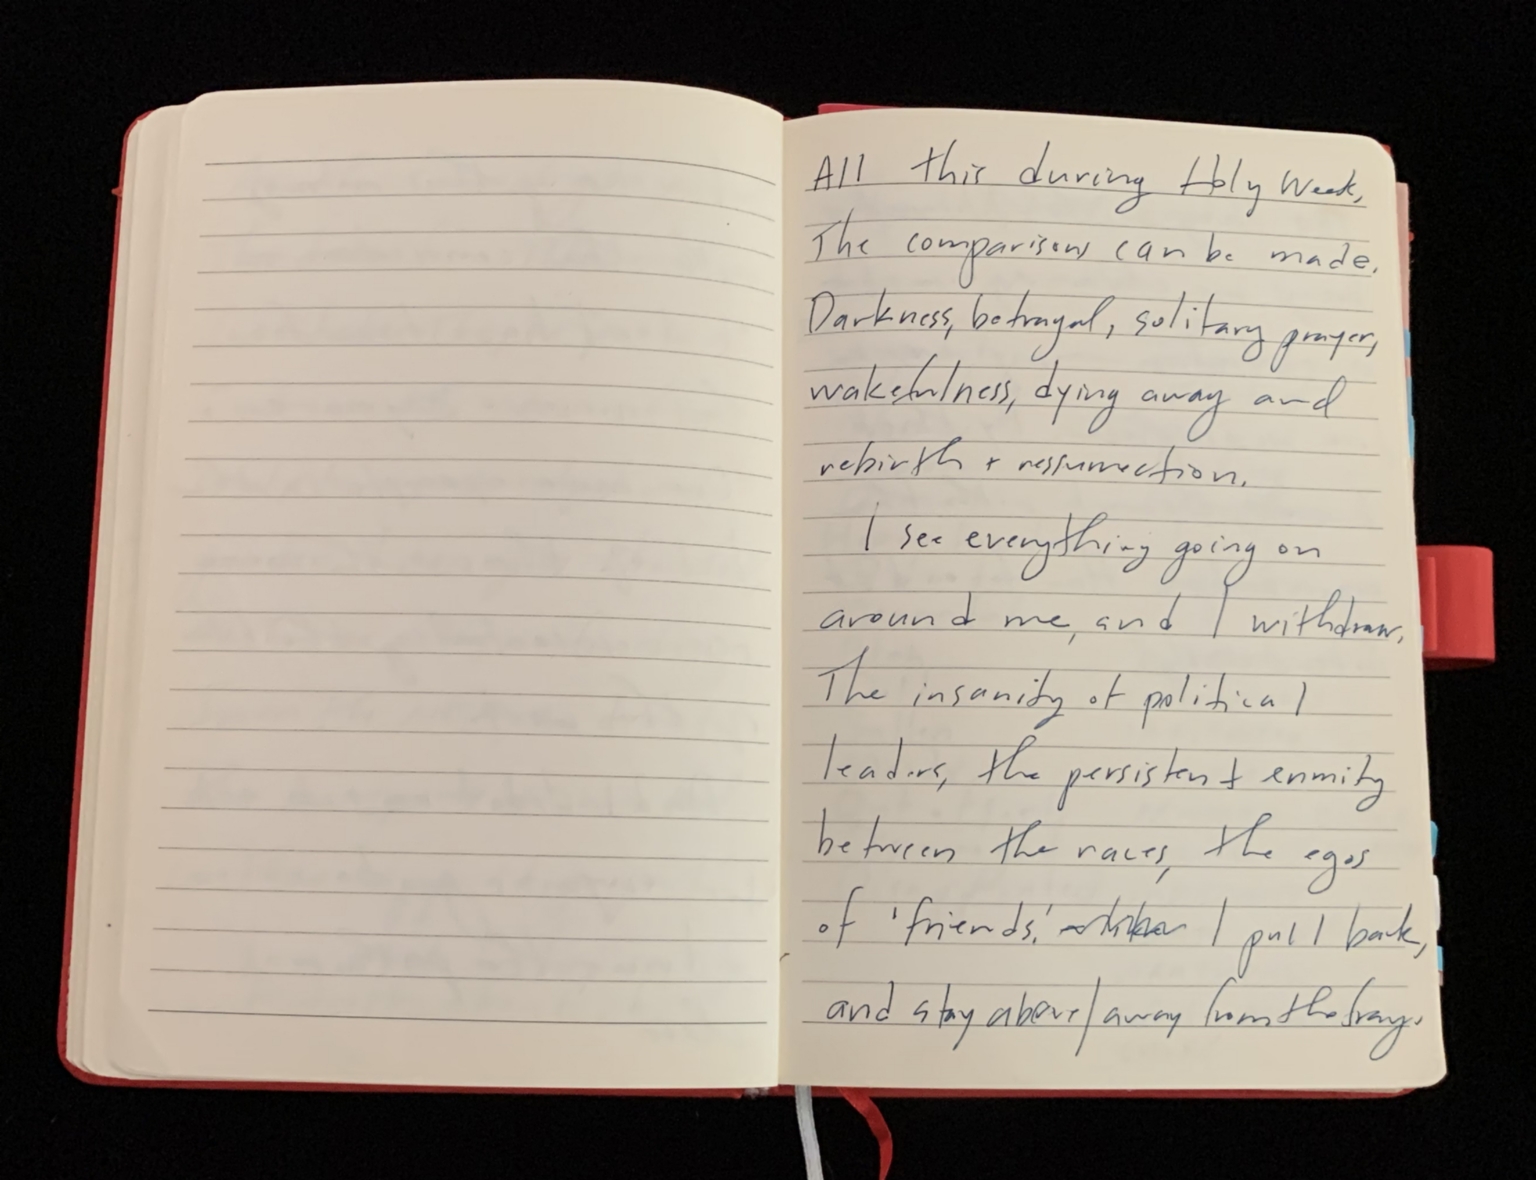 All this during Holy Week.
The comparisons can be made.
Darkness, betrayal, solitary prayer,
wakefulness, dying away and
rebirth + ressurrection.
I see everything going on
around me, and I withdraw.
The insanity of political
leaders, the persistent enmity
between the races, the egos
of 'friends,' I pull back,
and stay above/away from the fray.